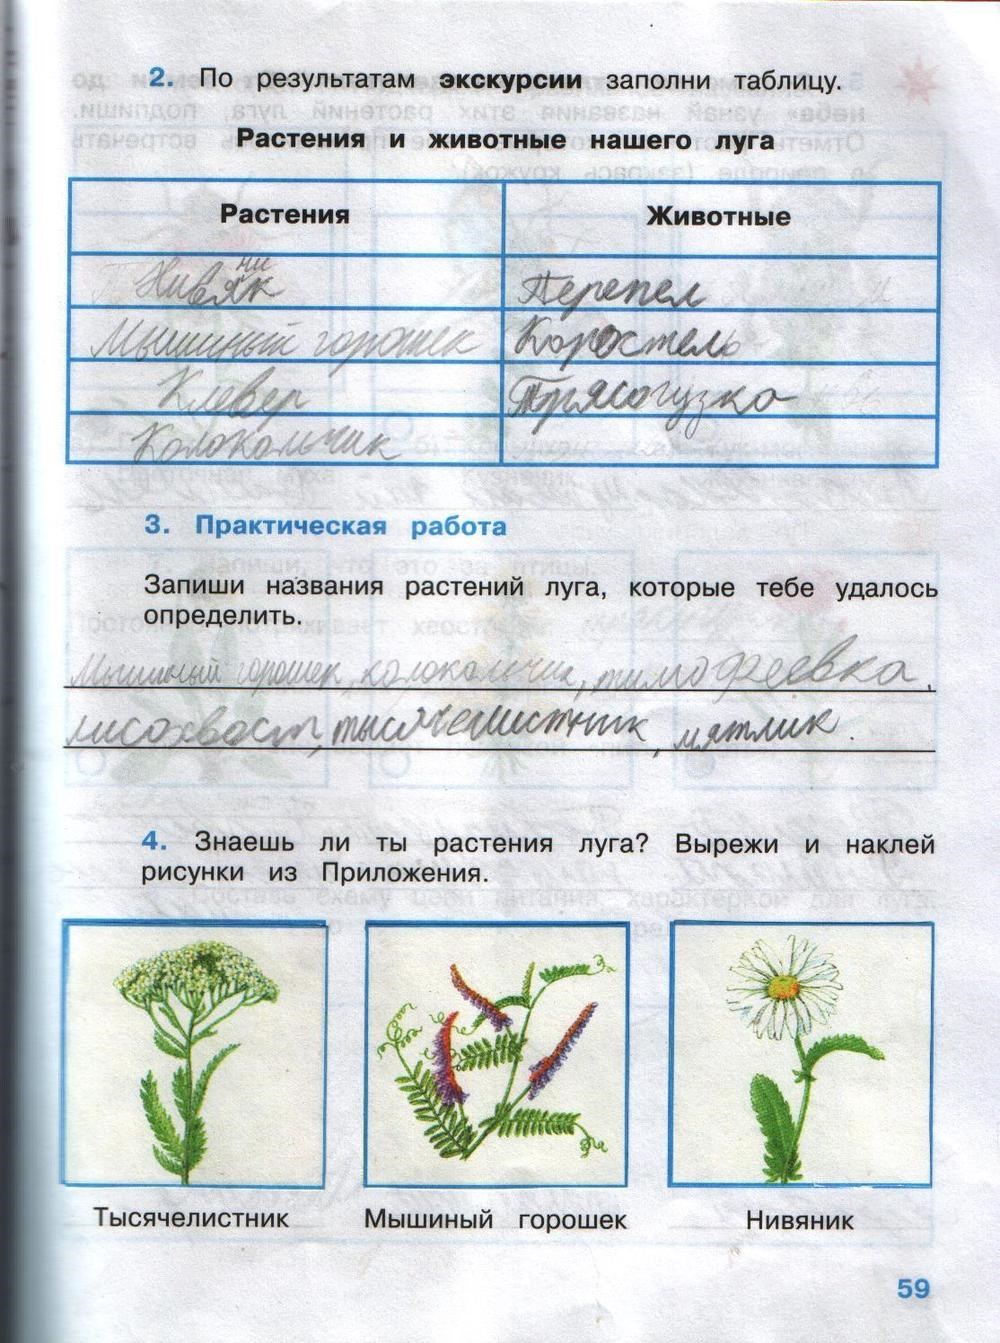 2. По результатам экскурсии заполни таблицу.
Растения и животные нашего луга
Растения Животные
Нивяник Перепел
Мышиный горошек Коростель
Клевер Трясогузка
Колокольчик
3. Практическая работа
Запиши названия растений луга, которые тебе удалось
определить.
Мышиный горошек, колокольчик, тимофеевка,
лисохвост, тысячелистник, мятлик.
4. Знаешь ли ты растения луга? Вырежи и наклей
рисунки из Приложения.
Тысячелистник Мышиный горошек Нивяник
59